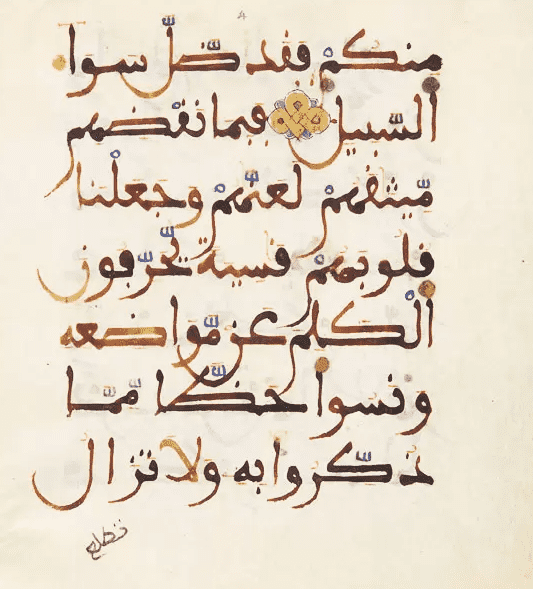 4
منكم فقد ضلّ سوا
السّبيل فبما نقضهم
مّيثقهم لعنّهم وجعلنا
قلوبهم قسية يحرّفون
الكلم عن مّواضعه
ونسوا حظّا مّمّا
ذكّروا به ولا تزال
تطلع